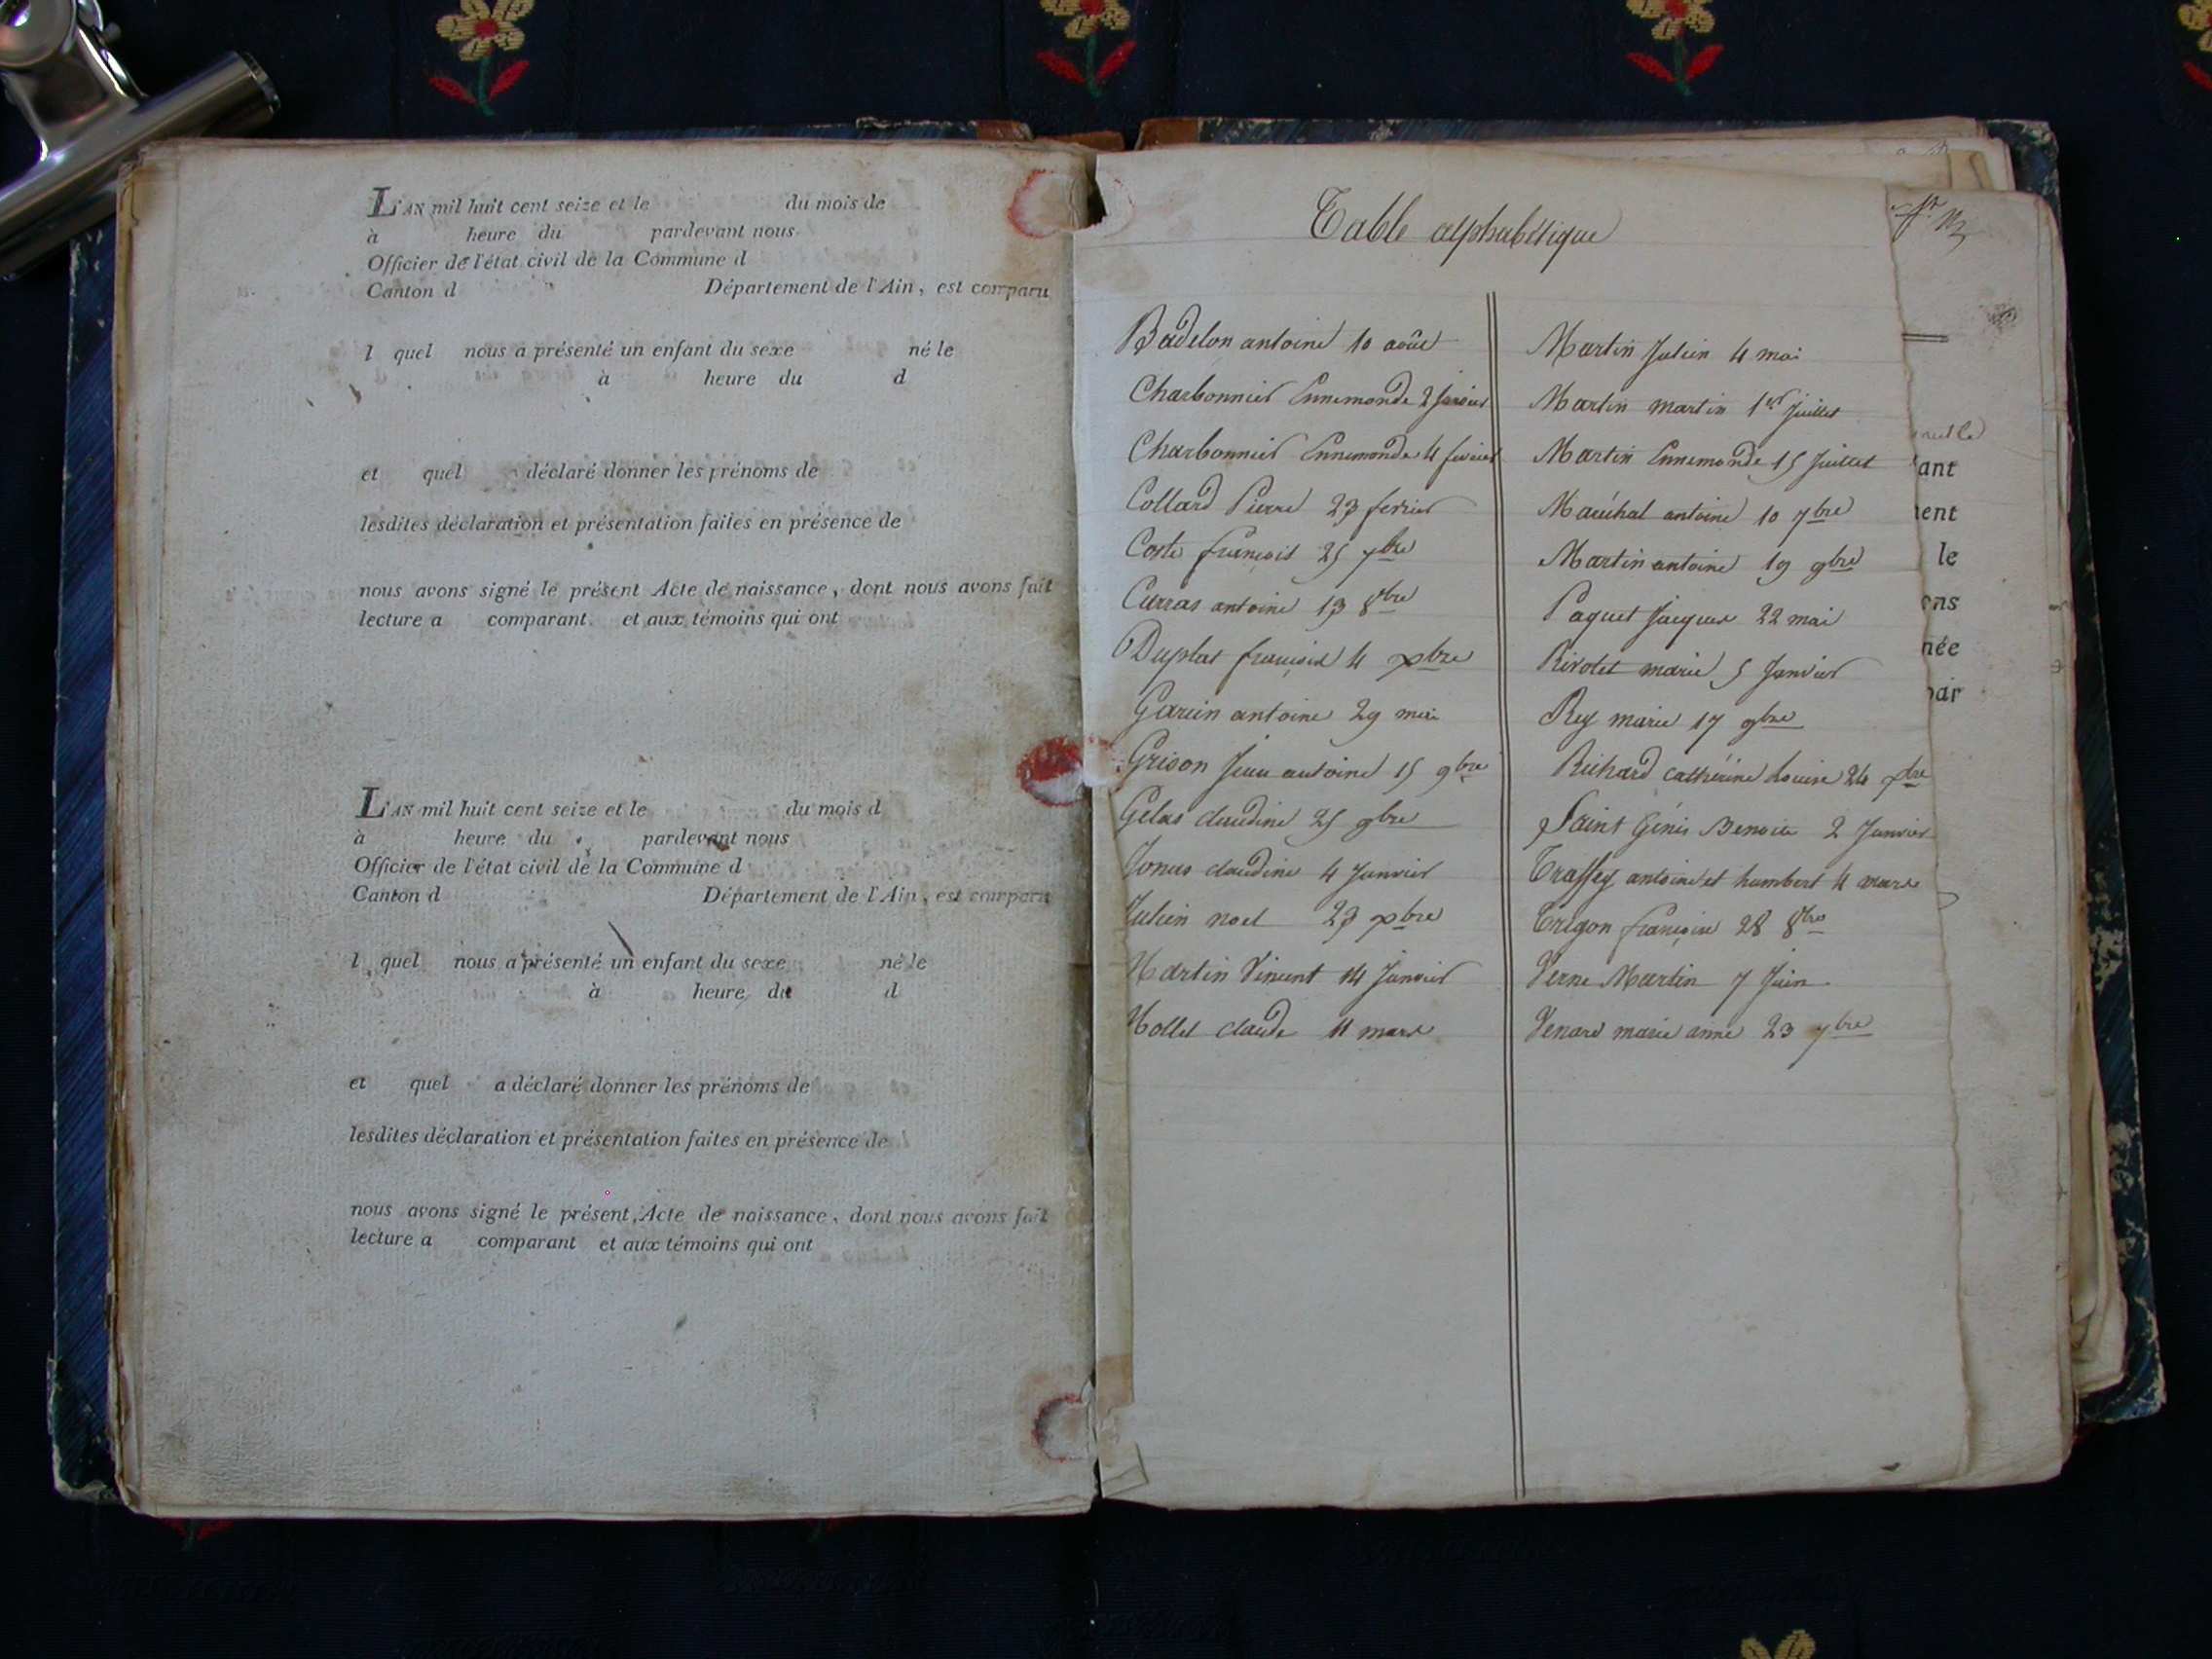 L'AN mil huit cent seize et le du mois de
à heure du pardevant nous
Officier de l'état civil de la Commune d
Canton d Département de l'Ain, est comparu
l quel nous a présenté un enfant du sexe né le
à heure du d
et quel déclaré donner les prénoms de
lesdites déclaration et présentation faites en présence de
nous avons signé le présent Acte de naissance, dont nous avons fait
lecture a comparant et aux témoins qui ont
L'AN mil huit cent seize et le du mois d
à heure du pardevant nous
Officier de l'état civil de la Commune d
Canton d Département de l'Ain, est comparu
l quel nous a présenté un enfant du sexe né le
à heure du d
et quel a déclaré donner les prénoms de
lesdites déclaration et présentation faites en présence de
nous avons signé le présent Acte de naissance, dont nous avons fait
lecture a comparant et aux témoins qui ont
Table alphabétique
Badelon antoine 10 août
Charbonnier Ennemonde 2 Janvier
Charbonnier Ennemonde 4 fevrier
Collard Pierre 23 fevrier
Coste françois 25 7bre
Curras antoine 13 8bre
Duplat françois 4 xbre
Garcin antoine 29 mai
Grison Jean antoine 15 9bre
Gelas claudine 25 9bre
Jonus claudine 4 Janvier
Julien noel 23 xbre
Martin Vincent 14 Janvier
Mollet claude 11 mars
Martin Julien 4 mai
Martin martin 1er Juillet
Martin Ennemonde 15 Juillet
Maréchal antoine 10 7bre
Martin antoine 19 9bre
Paquet Jacques 22 mai
Rivolet marie 5 Janvier
Rey marie 17 9bre
Richard cathérine Louise 24 xbre
Saint Génis Benoite 2 Janvier
Traffey antoine et humbert 4 mars
Trigon françoise 28 8bre
Verne Martin 7 Juin
Venard marie anne 23 7bre
ant
ent
le
ons
née
air